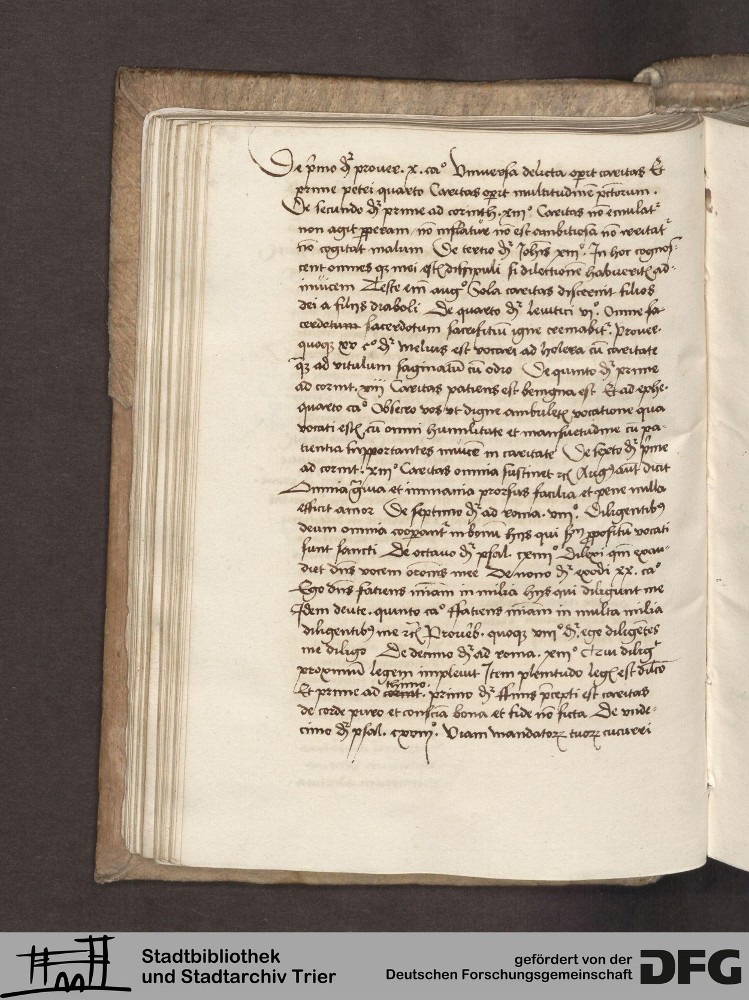 De p̄mo dr̄ prouer. x. caº Vniuersa delicta operit caritas Et
prime petri quarto Caritas operit multitudinē pctorum.
De secundo dr̄ prime ad corinth. xiiiº Caritas nō emulatʳ
non agit perperam nō inflatur nō est ambitiosa nō irritatʳ
nō cogitat malum De tertio dr̄ Johis xiiiº. In hoc cognos-
cent omnes qz mei estis discipuli si dilectionē habueritis ad-
inuicem Teste em̄ augº Sola caritas discernit filios
dei a filiis diaboli De quarto dr̄ leuitici viº. Omne sa-
cerdotum sacerdotum sacrificiū igne cremabitʳ. Prouer.
quoqz xv cº dr̄ melius est vocari ad holera cū caritate
qz ad vitulum saginatū cū odio De quinto dr̄ prime
ad corint. xiii Caritas patiens est benigna est Et ad ephe.
quarto caº Obsecro vos vt digne ambuletis vocatione qua
vocati estis cū omni humilitate et mansuetudine cū pa-
tientia supportantes inuicē in caritate De sexto dr̄ p̄me
ad corint. xiiiº Caritas omnia sustinet rc̄ Augꝰ aūt dicit
Omnia gr̄uia et immania prorsus facilia et pene nulla
efficit amor De septimo dr̄ ad roma. viiiº. Diligentibꝰ
deum omnia cooperantʳ in bonū hijs qui scdm ppositū vocati
sunt sancti De octauo dr̄ psal. cxiiiiº Dilexi qm̄ exau-
diet dn̄s vocem orōnis mee De nono dr̄ exodi xx. caº
Ego dn̄s fatiens mīam in milia hijs qui diligunt me
Idem deute. quinto caº ffatiens mīam in multa milia
diligentibꝰ me rc̄ Prouerb. quoqz viiiº dr̄. ego diligētes
me diligo De decimo dr̄ ad roma. xiiiº Qui diligit
proximū legem impleuit Item plenitudo legis est dilc̄o
thimo.
Et prime ad corint. primo dr̄ ffinis p̄cepti est caritas
de corde puro et conscīa bona et fide nō ficta De vnde-
cimo dr̄ psal. cxviiiº. Viam mandatorꝝ tuorꝝ cucurri
Stadtbibliothek
und Stadtarchiv Trier
gefördert von der
Deutschen Forschungsgemeinschaft
DFG